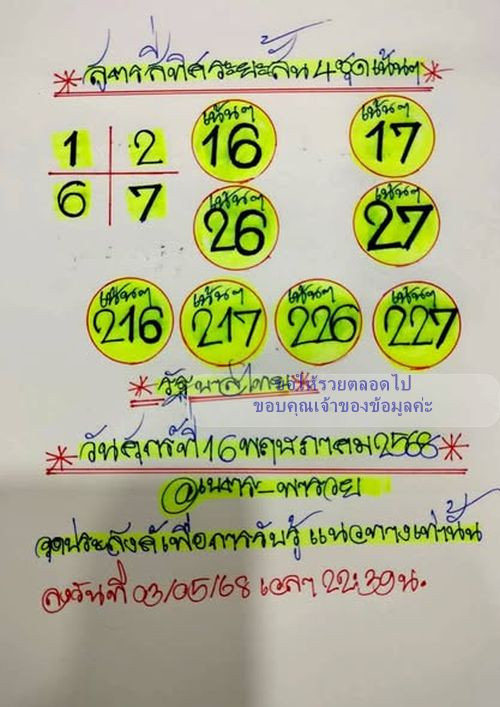 * สูตรสี่ทิศระยะสั้น 4 ชุด เน้นๆ *
1 2 เน้นๆ 16 เน้นๆ 17
6 7 เน้นๆ 26 เน้นๆ 27
เน้นๆ 216 เน้นๆ 217 เน้นๆ 226 เน้นๆ 227
* รัฐบาลไทย *
ขอให้รวยตลอดไป
ขอบคุณเจ้าของข้อมูลค่ะ
* วันศุกร์ที่ 16 พฤษภาคม 2568 *
จุดประสงค์เพื่อการรับรู้ แนวทางเท่านั้น
ลงวันที่ 03/05/68 เวลา 22:39 น.